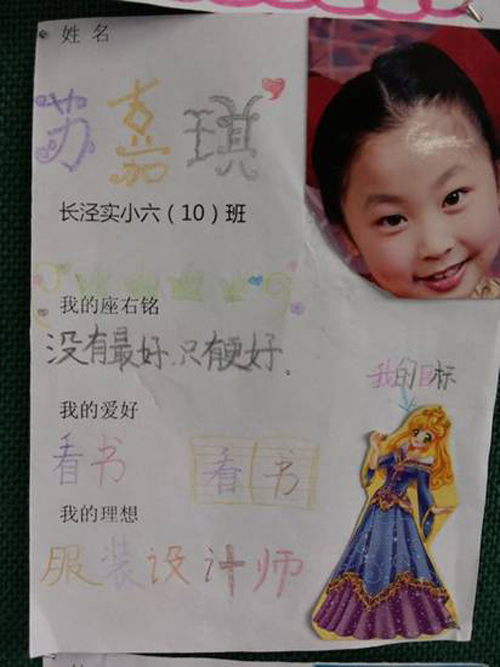 姓名
苏嘉琪
长泾实小六（10）班
我的座右铭
没有最好,只有更好.
我的目标
我的爱好
看书
看书
我的理想
服装设计师